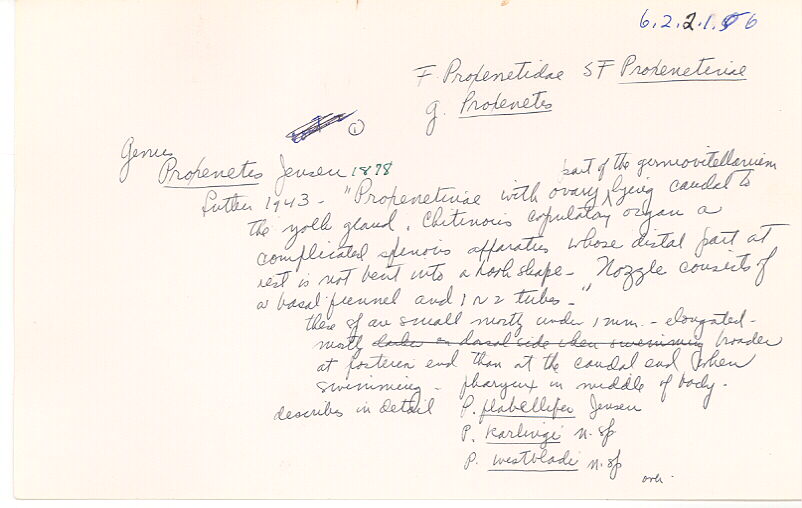 6.2.2.1.6
F. Proxenetidae SF Proxenetinae
g. Proxenetes
①
Genus
Proxenetes Jensen 1878
part of the germovitellarium
Luther 1943 - "Proxenetinae with ovary lying caudal to
the yolk gland. Chitinous copulatory organ a
complicated spinous apparatus whose distal part at
rest is not bent into a hook shape - Nozzle consists of
a basal funnel and 1 or 2 tubes -"
these sp are small mostly under 1 mm. - elongated -
mostly darker on dorsal side when swimming broader
at posterior end than at the caudal end when
swimming - pharynx in middle of body.
describes in detail P. flabellifer Jensen
P. karlingi n. sp
P. westbladi n. sp
over.